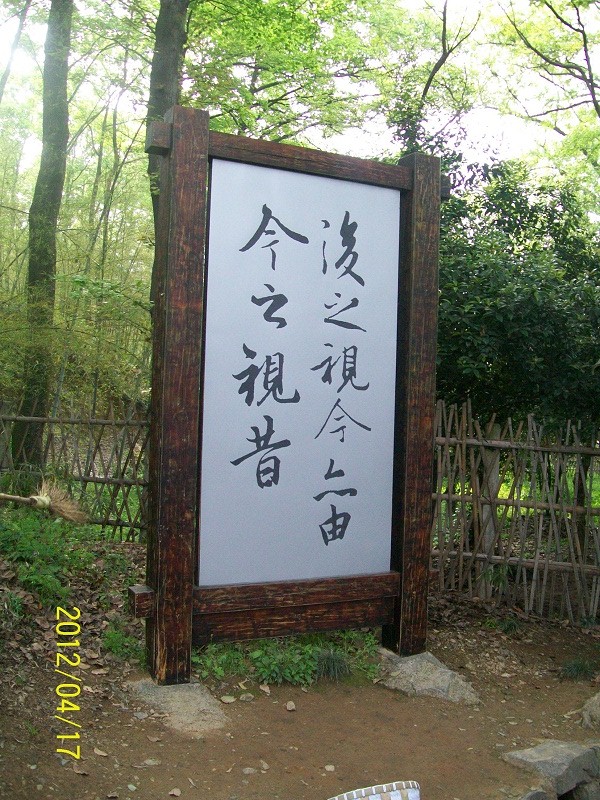 後之視今亦由
今之視昔
2012/04/17